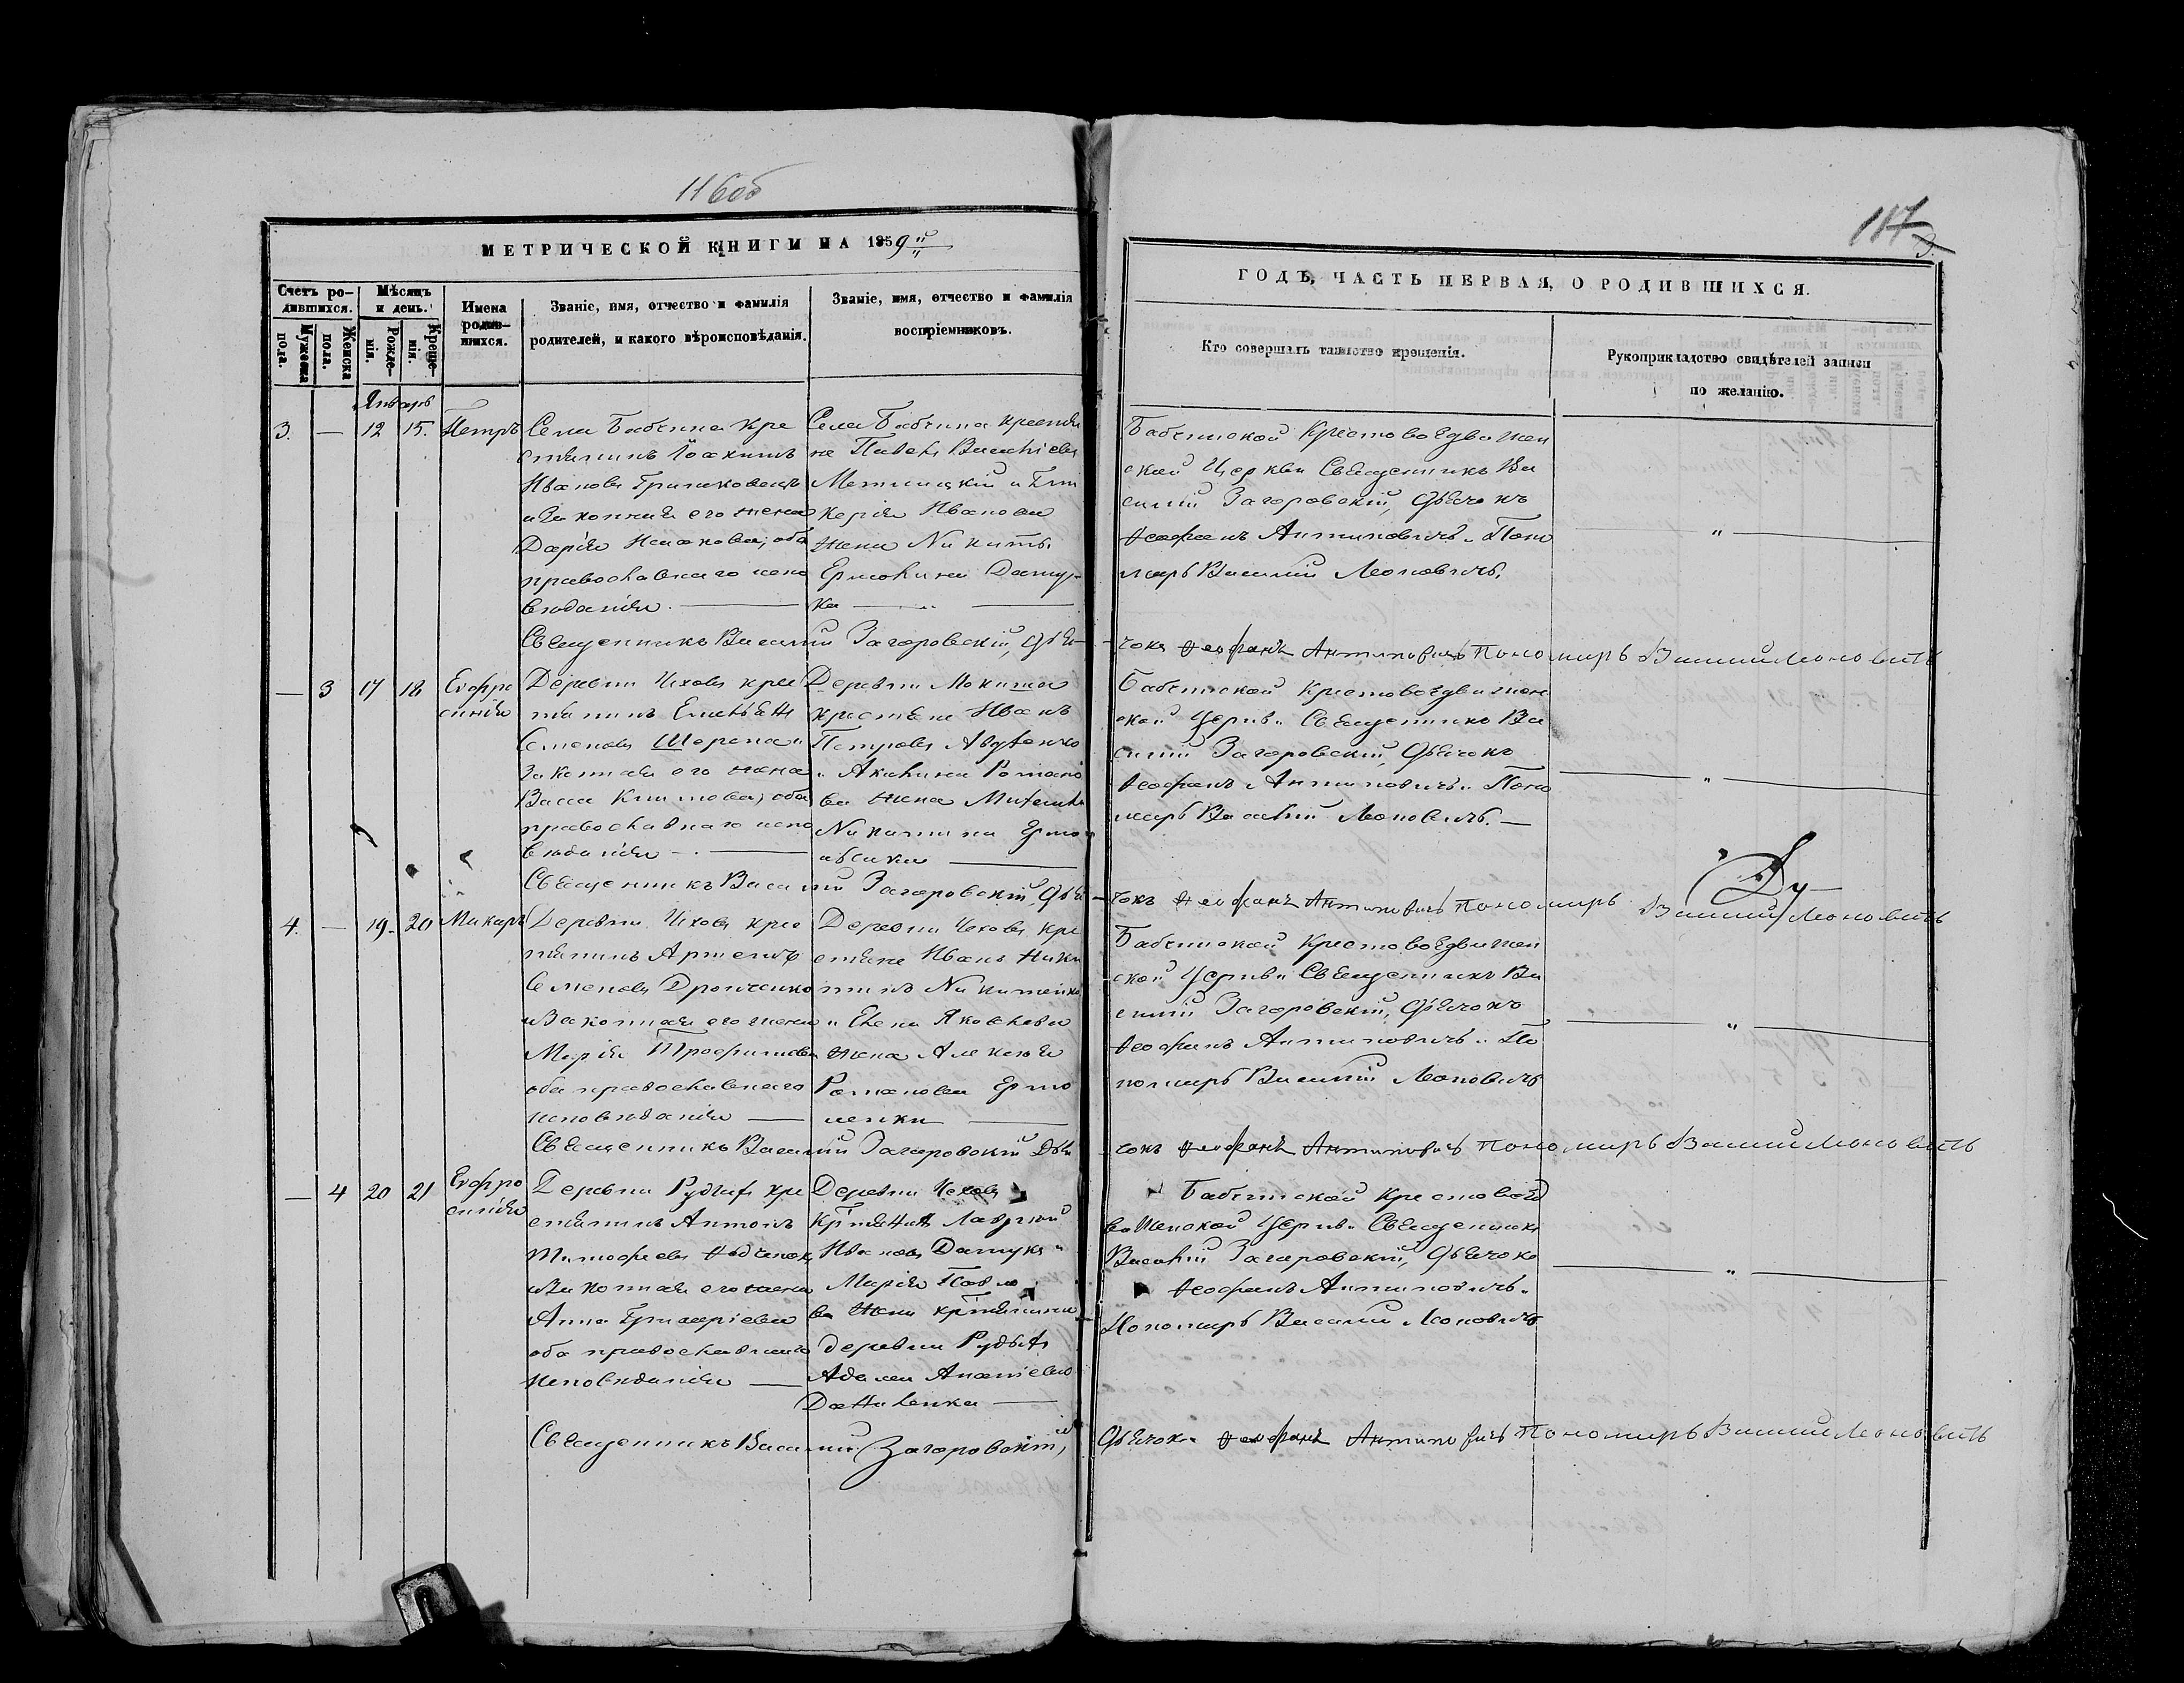 116об
117
3.
МЕТРИЧЕСКОЙ КНИГИ НА 1859й
ГОДЪ, ЧАСТЬ ПЕРВАЯ, О РОДИВШИХСЯ.
Счетъ ро-
дившихся.
Мужеска
пола.
Женска
пола.
Мѣсяцъ
и день.
Рожде-
нія.
Креще-
нія.
Имена
родив-
шихся.
Званіе, имя, отчество и фамилія
родителей, и какого вѣроисповѣданія.
Званіе, имя, отчество и фамилія
воспріемниковъ.
Кто совершалъ таинство крещенія.
Рукоприкладство свидѣтелей записи
по желанію.
Январь
3. — 12 15. Петръ
Села Бабчина кре
стянинъ Іоакимъ
Ивановъ
и законная его жена
Дарія Исакова; оба
православнаго испо
вѣданія. —
Села Бабчина крестья
не Павелъ Василіевъ
и Гли
керія Иванова
жена Никиты
Ермолина Дашу-
ка —
Бабчинской Крестовоздвижен
ской Церкви Священникъ Ва
силій Загоровскій, Дьячокъ
Ѳеофанъ Антиповичъ и Поно
марь Василій Моновичъ.
Священникъ Василій Загоровскій, Дья-
чокъ Ѳеофанъ Антиповичъ Пономарь Василий Моновичь
— 3 17 18 Евфро
синія
Деревни Чехова крес
тянинъ Елисѣй
Семеновъ и
законная его жена
Васса Климова; оба
православнаго испо
вѣданія — . —
Деревни
крестяне Иванъ
Петровъ
и Акилина Романо
ва жена
Никитина Ермо
Бабчинской Крестовоздвижен
ской Церкви Священникъ Ва
силій Загоровскій, Дьячокъ
Ѳеофанъ Антиповичъ и Поно
марь Василій Моновичъ. —
Священникъ Василій Загоровскій, Дья-
чокъ Ѳеофанъ Антиповичъ Пономарь Василий Моновичь
4. — 19. 20 Макаръ
Деревни Чехова крес
тянинъ Артемій
Семеновъ Дронченко
и Законная его жена
Марія Трофимова
оба православнаго
исповѣданія —
Деревни Чехова кре
стяне Иванъ Ники
тинъ Никитенко
и Елена Яковлева
жена Алексѣя
Романова Ермо
ленки —
Бабчинской Крестовоздвижен
ской Церкви Священникъ Ва
силій Загоровскій, Дьячокъ
Ѳеофанъ Антиповичъ и По
номарь Василій Моновичъ
Священникъ Василій Загоровскій Дья
чокъ Ѳеофанъ Антиповичъ Пономарь Василий Моновичь
— 4 20 21 Евфро
синія
Деревни кре
стянинъ Антонъ
Тимофеевъ
и Законная его жена
Анна Григоріева
оба православнаго
исповѣданія —
Деревни Чехова
Лаврений
Ивановъ Дашукъ и
Марія Павло
ва жена
деревни
Адама Ананіева
Даниленка —
Бабчинской Крестовоз
движенской Церкви Священникъ
Василій Загоровскій, Дьячокъ
Ѳеофанъ Антиповичъ и
Пономарь Василій Моновичъ
Священникъ Василій Загоровскій,
Дьячокъ Ѳеофанъ Антиповичъ Пономарь Василий Моновичь